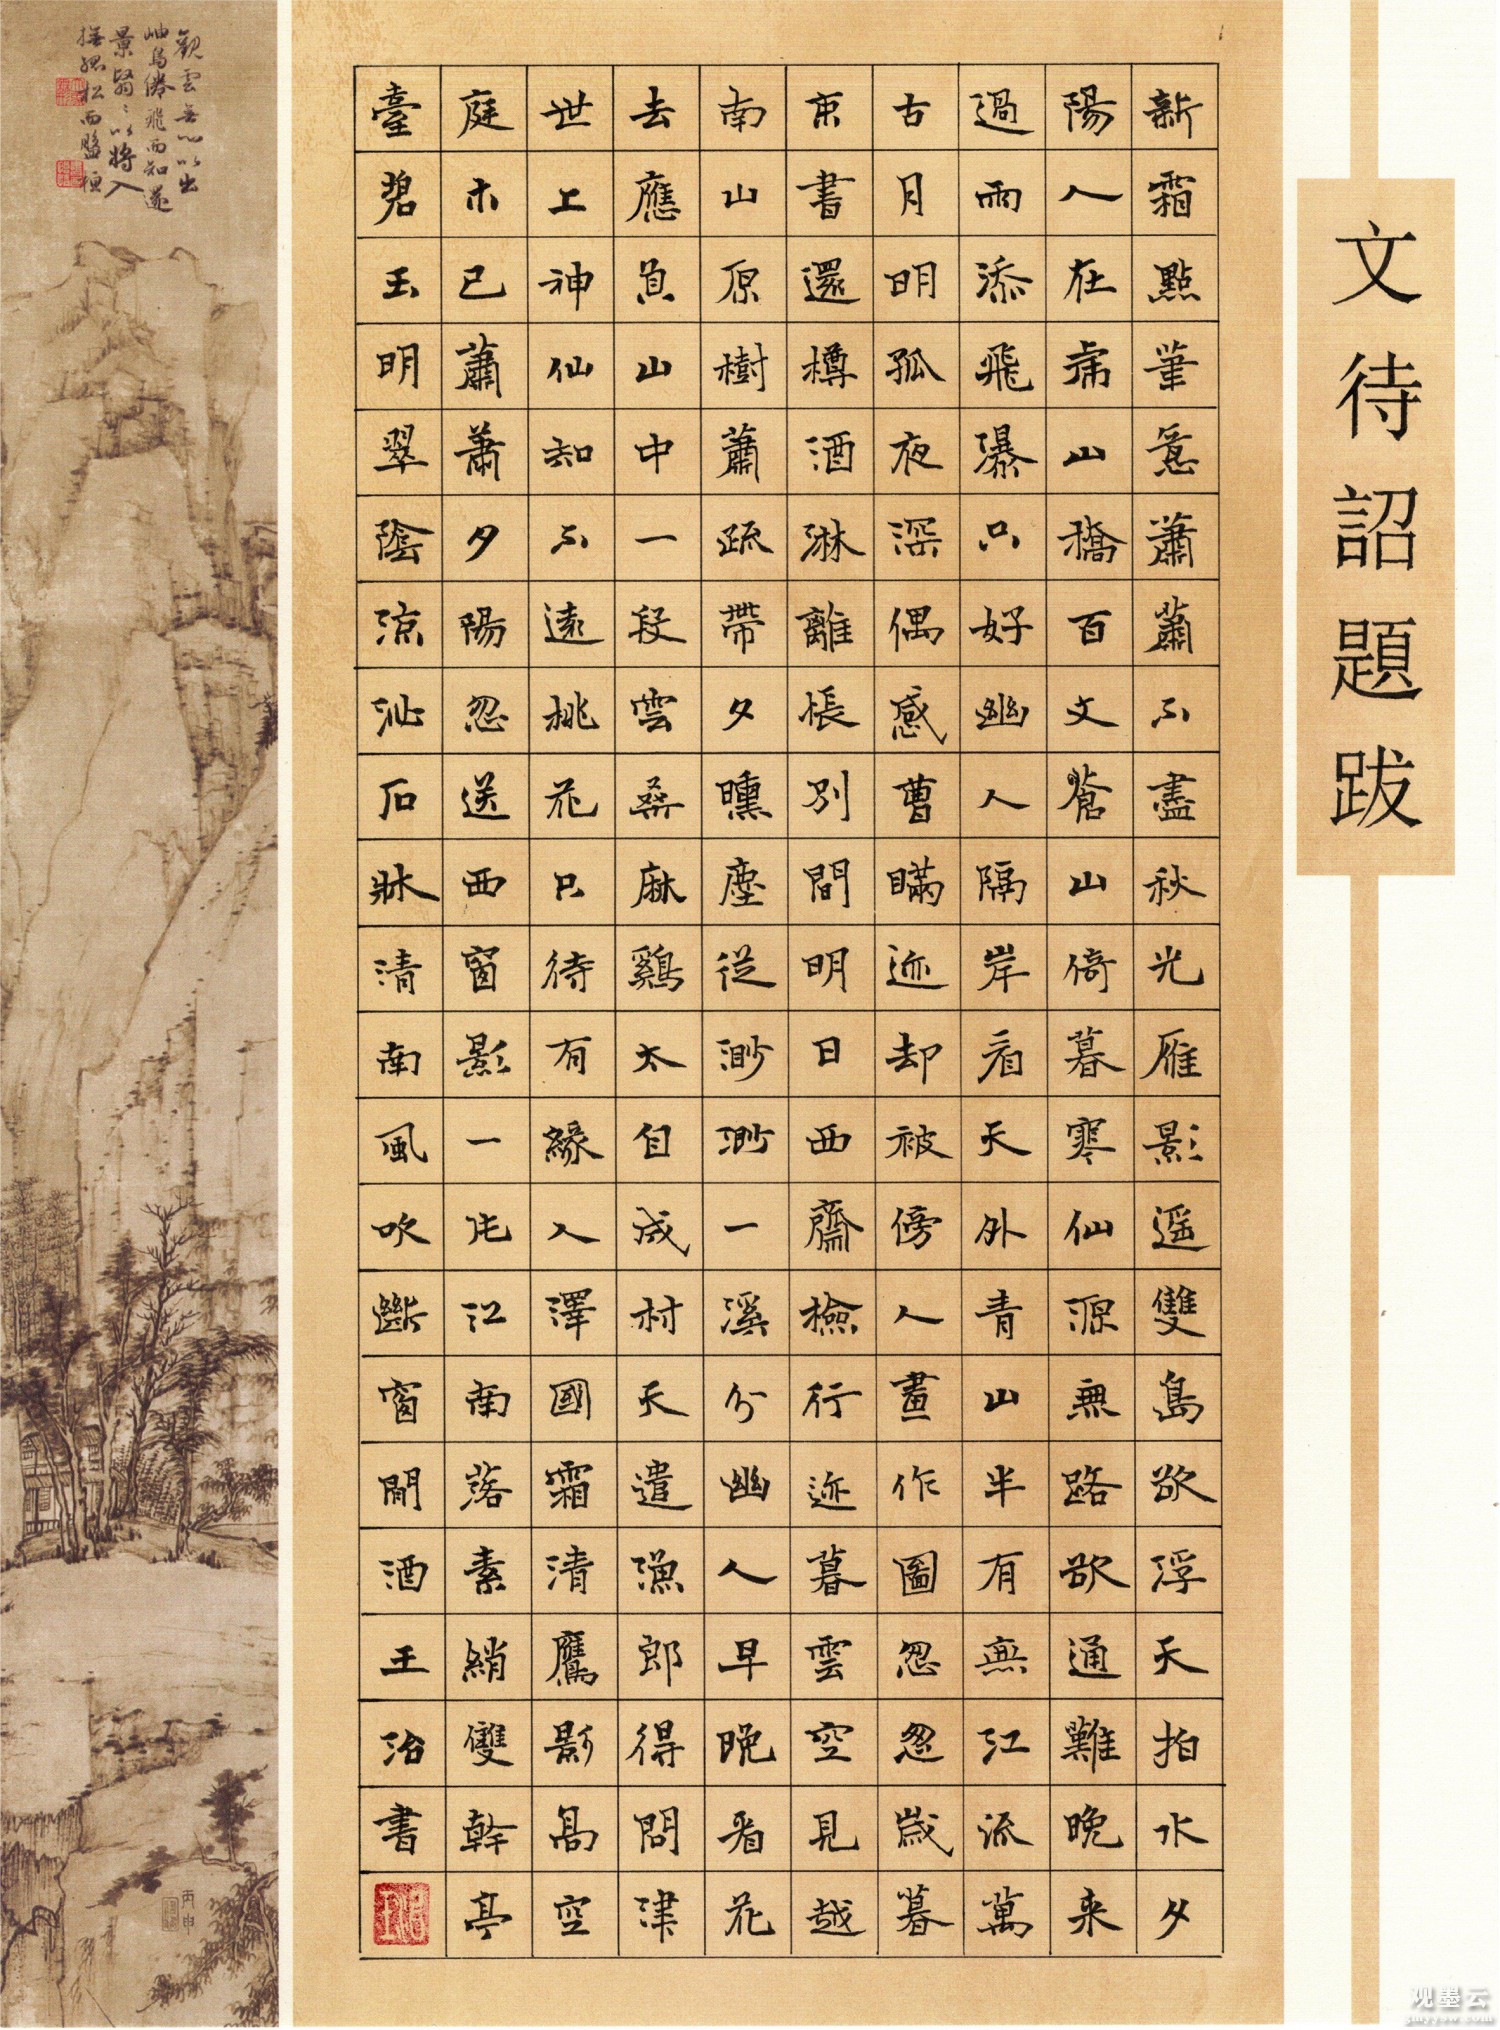 文待詔題跋
新霜點筆意蕭蕭不盡秋光雁影遥雙島欲浮天拍水夕
陽人在虎山橋百文蒼山倚暮寒仙源無路欲通難晚来
過雨添飛瀑只好幽人隔岸看天外青山半有無江流萬
古月明孤夜深偶感曹瞞迹却被傍人畫作圖忽忽歲暮
束書還樽酒淋離悵別間明日西齋檢行迹暮雲空見越
南山原樹蕭疏帶夕曛塵從渺渺一溪分幽人早晚看花
去應負山中一段雲桑麻鷄太自成村天遣漁郎得問津
世上神仙知不遠桃花只待有緣人澤國霜清鷹影高空
庭木已蕭蕭夕陽忽送西窗影一片江南落素綃雙幹亭
臺碧玉明翠陰涼沁石牀清南風吹斷窗間酒王治書
觀雲無心以出
岫鳥倦飛而知還
景翳〻以將入
撫孤松而盤桓
丙申
观墨云